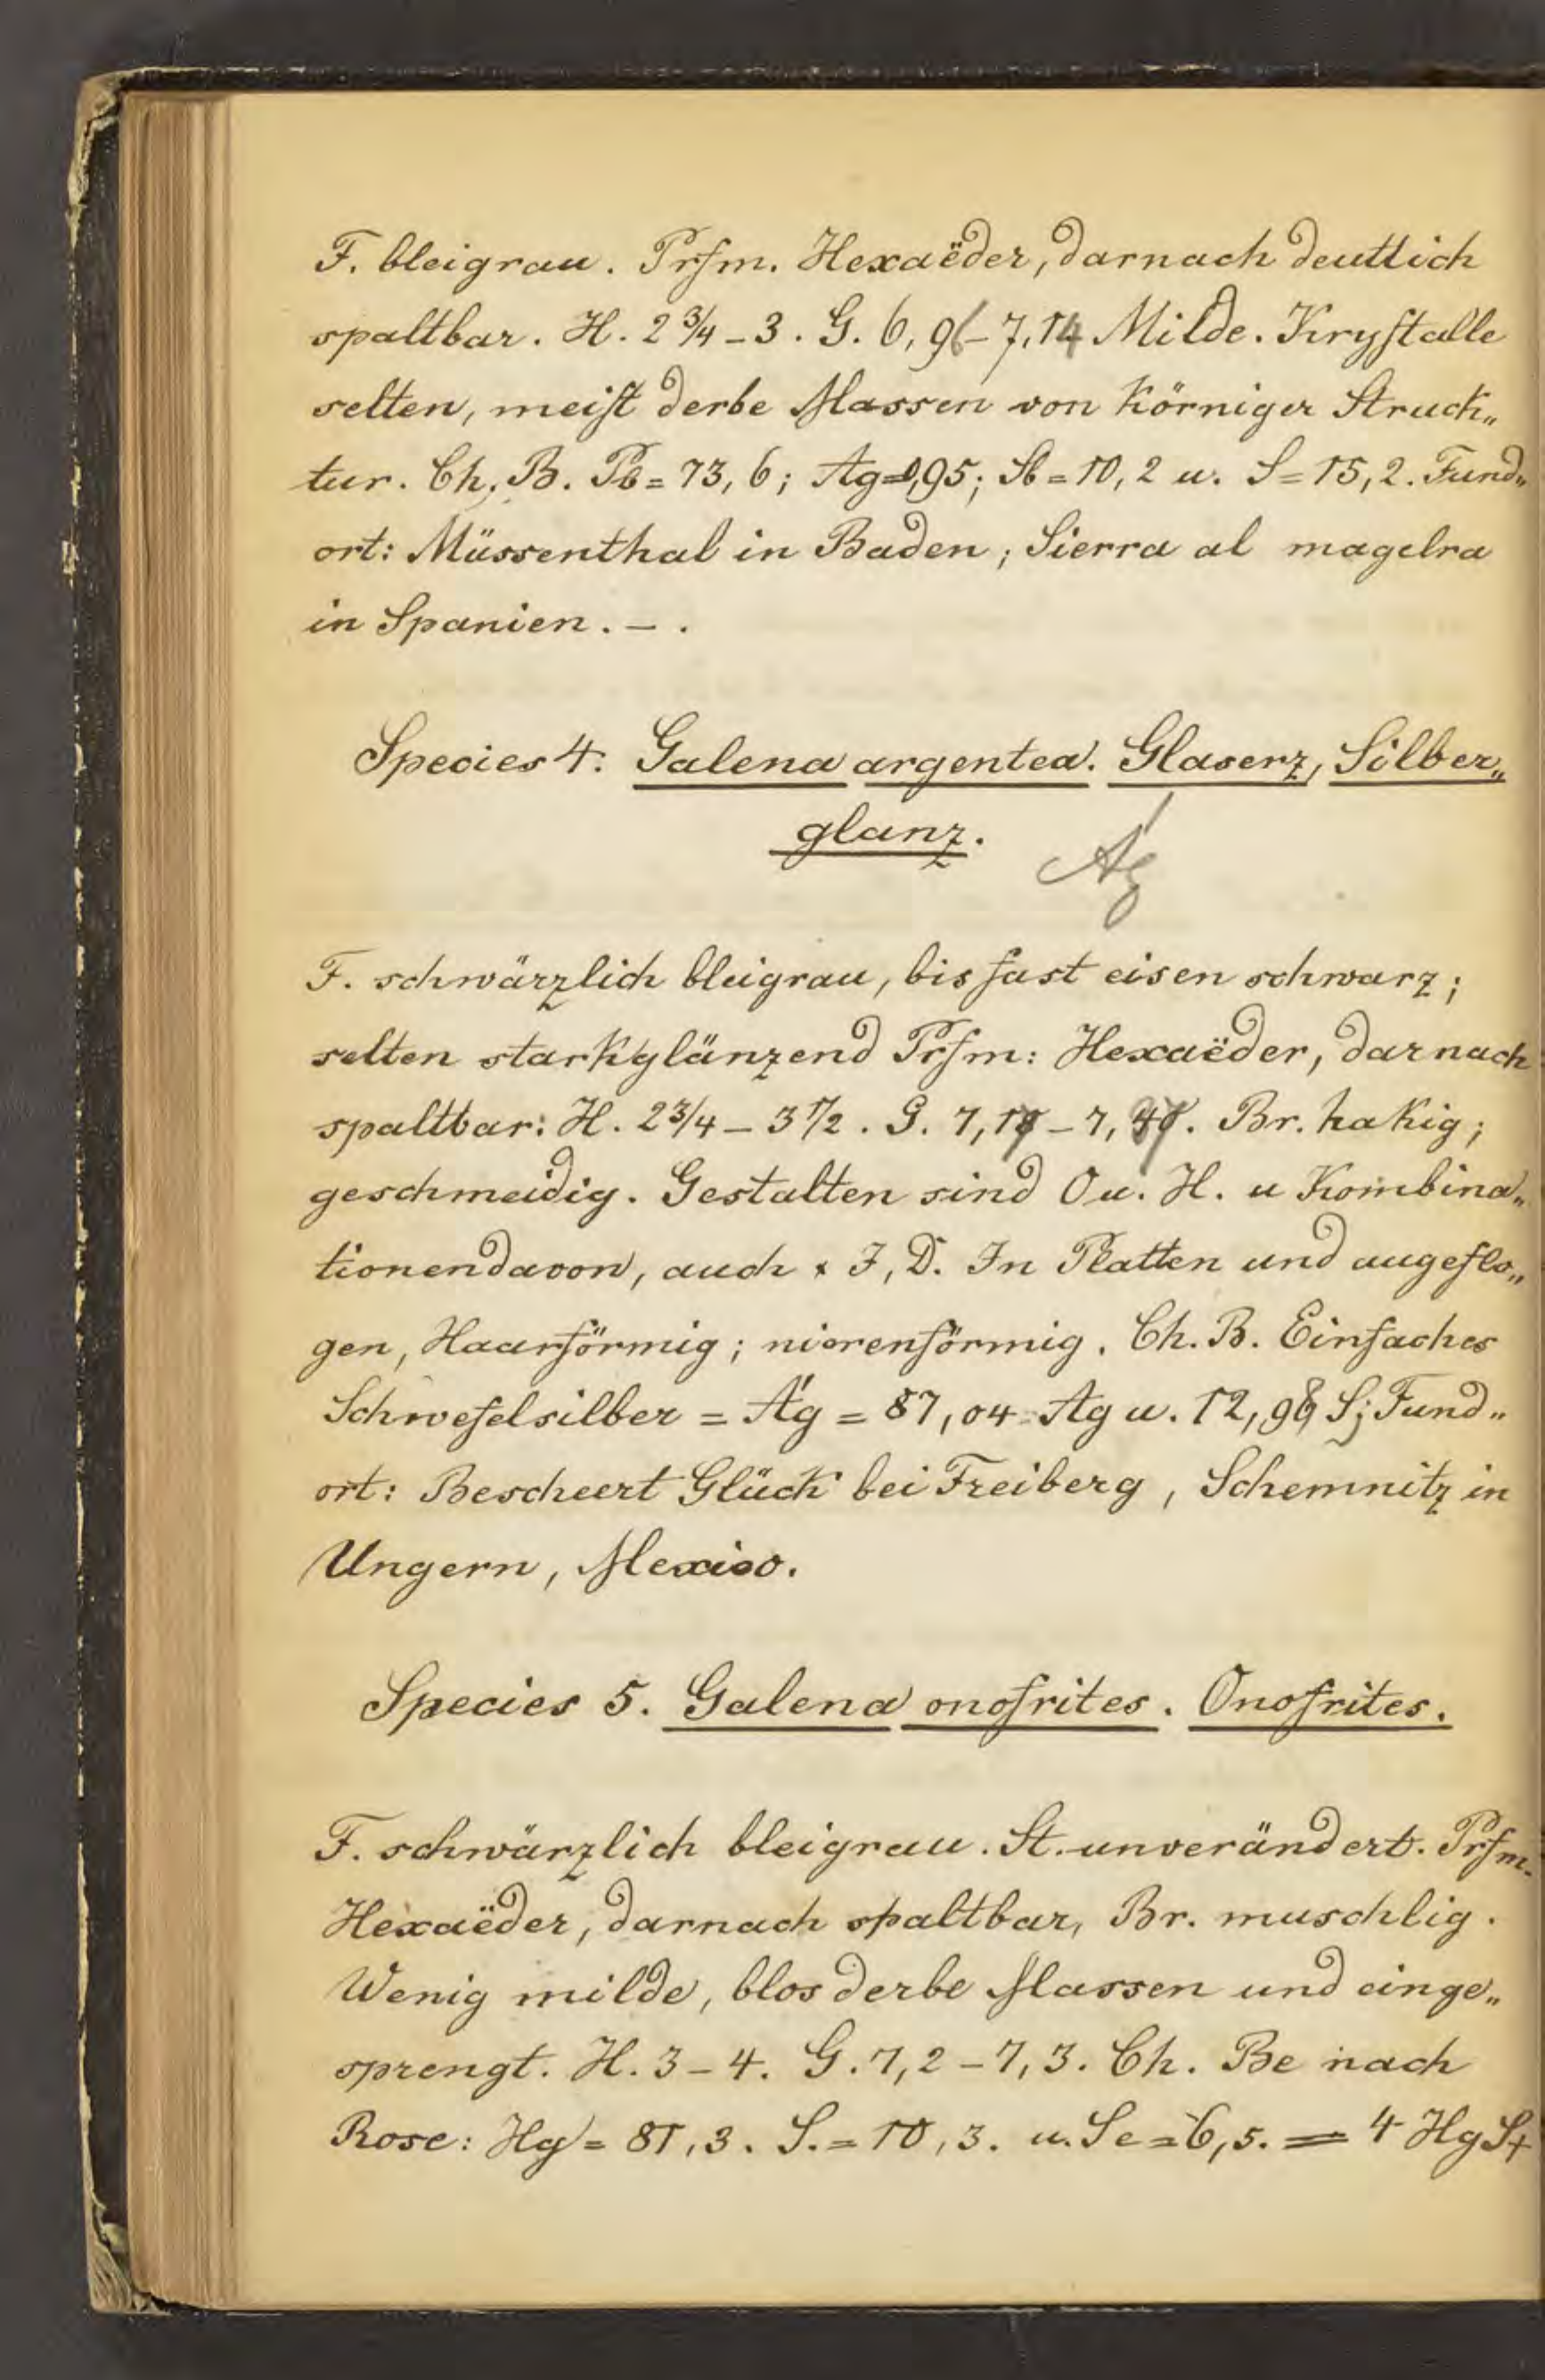 F. bleigrau. Prfm. Hexaëder, darnach deutlich
spaltbar. H. 2 3/4 – 3. G. 6,96 – 7,14 Milde. Krystalle
selten, meist derbe Massen von körniger Struck„
tur. Ch. B. Pb = 73,6; Ag = 0,95; Sb = 10,2 u. S = 15,2. Fund„
ort: Müssenthal in Baden; Sierra al magelra
in Spanien. – .
Species 4. Galena argentea. Glaserz, Silber„
glanz.
Ag
F. schwärzlich bleigrau, bis fast eisen schwarz;
selten starkglänzend Prfm: Hexaëder, darnach
spaltbar: H. 2 3/4 – 3 1/2. G. – Br. hakig;
geschmeidig. Gestalten sind O u. H. u Kombina„
tionen davon, auch × I, D. In Platten und angeflo„
gen, Haarförmig; nierenförmig. Ch. B. Einfaches
Schwefelsilber = Ág = 87,04 Ag u. 12,96 S; Fund„
ort: Bescheert Glück bei Freiberg, Schemnitz in
Ungern, Mexico.
Species 5. Galena onofrites. Onofrites.
F. schwärzlich bleigrau. St. unverändert. Prfm.
Hexaëder, darnach spaltbar, Br. muschlig.
Wenig milde, blos derbe Massen und einge„
sprengt. H. 3 – 4. G. 7,2 – 7,3. Ch. Be nach
Rose: Hg = 81,3. S. = 10,3. u. Se = 6,5. = 4 HgS+